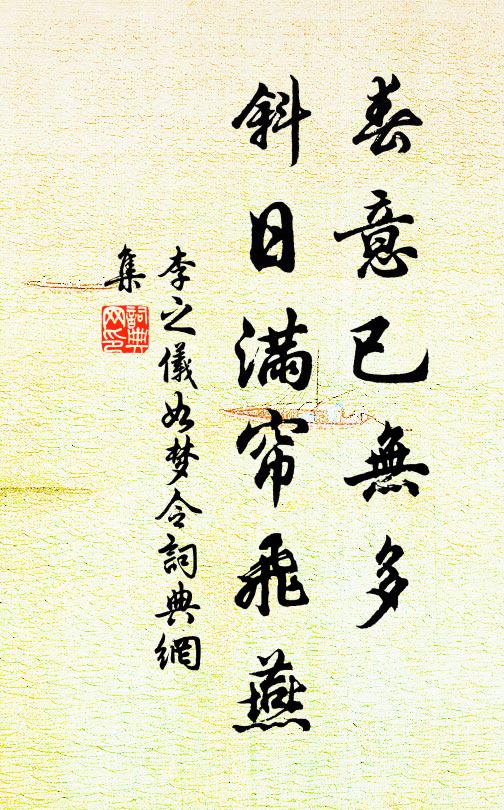 春意已無多
斜日满帘飛燕
李之儀如梦令詞典網
集
詞典
网印